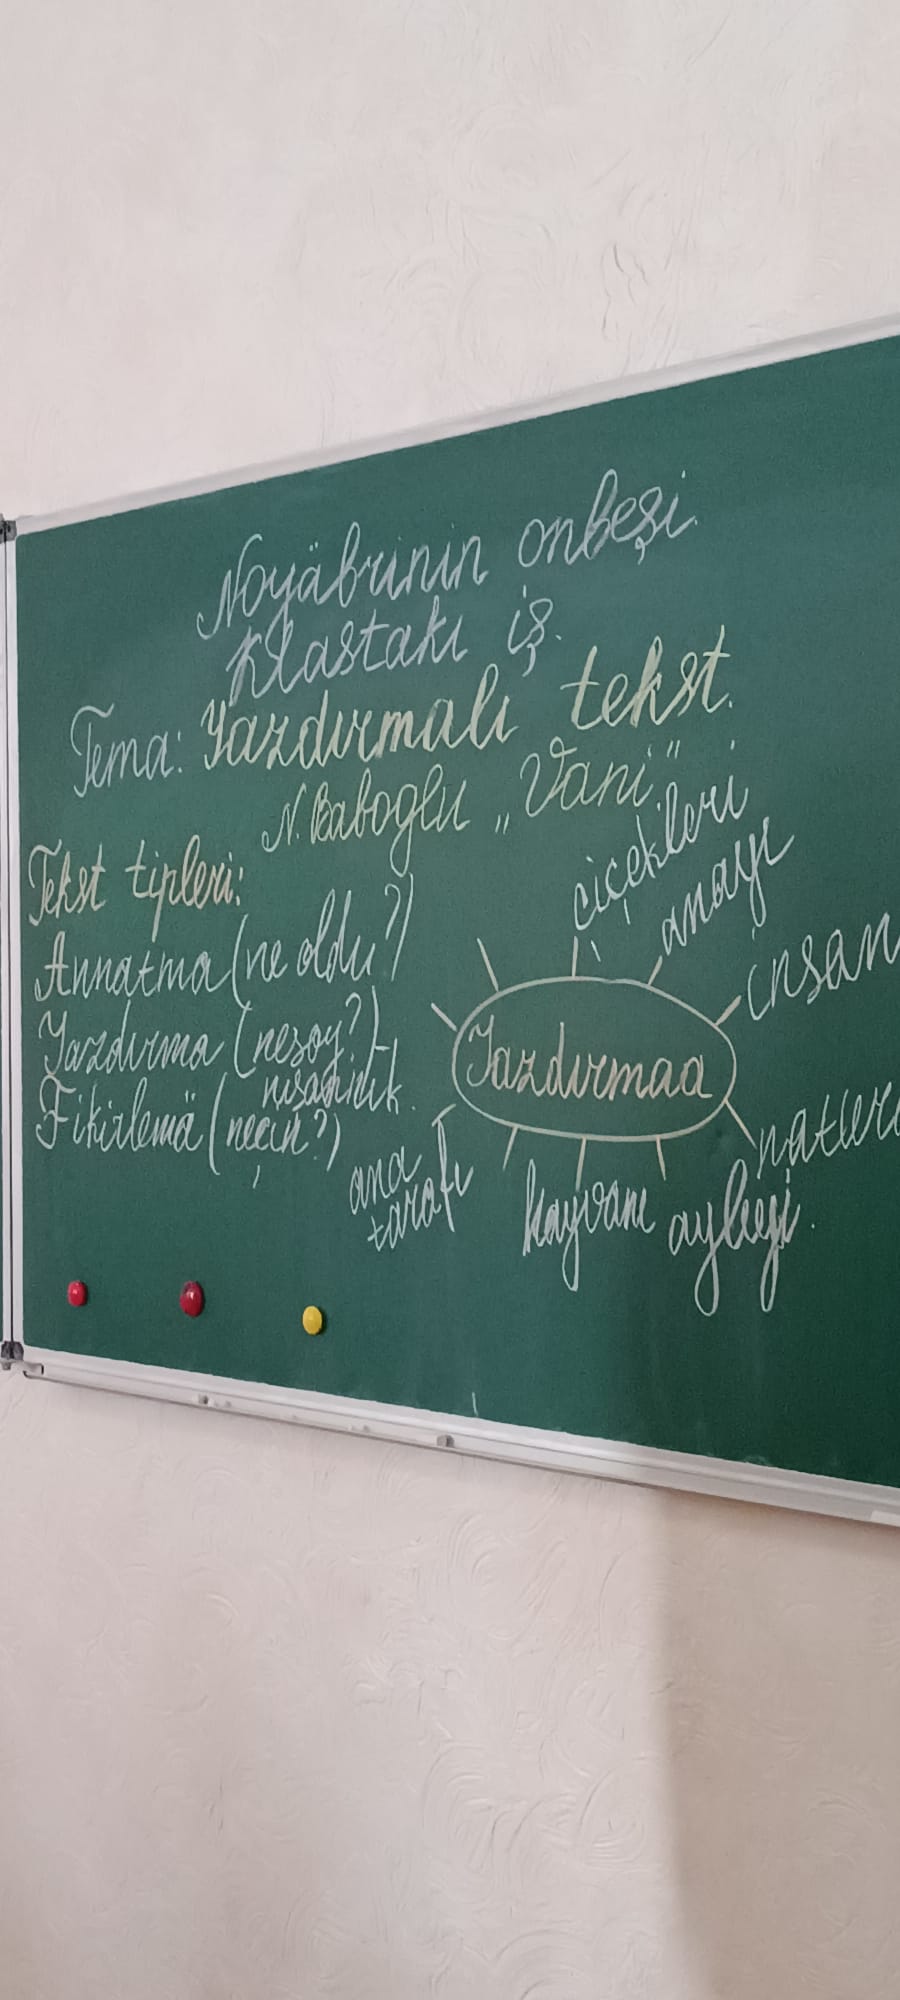 Noyäbrinin onbeşi.
Klastakı iş.
Tema: Yazdırmalı tekst.
N. Baboglu „Vani”
Tekst tipleri:
Annatma (ne oldu?)
Yazdırma (nesoy?)
nışannık.
Fikirlemä (neçin?)
Yazdırmaa
çiçekleri
anayı
insan
natur
ayleyi.
hayvanı
ana
tarafı